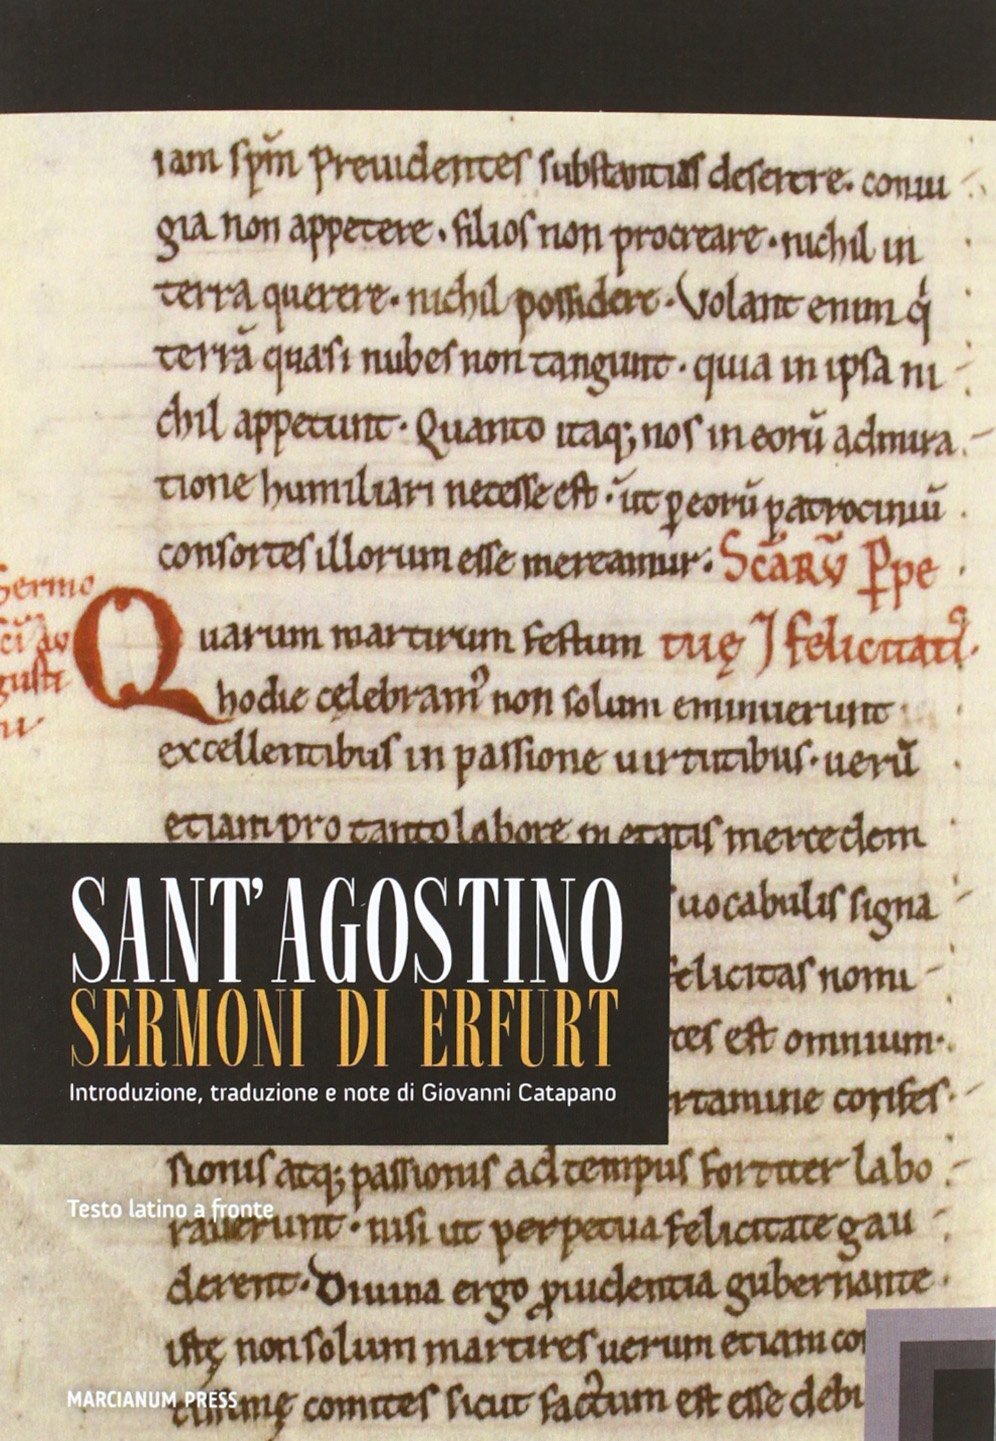 iam sp̄m preuidentes substantias deserere. coniu
gia non appetere. filios non procreare. nichil in
terra querere. nichil possidere. Volant enim q̇
terrā quasi nubes non tangunt. quia in ipsa ni
chil appetunt. Quanto itaq; nos in eorū admira
tione humiliari necesse est. ut ꝑ eorū patrociniū
consortes illorum esse mereamur. Scārū Ꝑpe
Sermo
sci au
gusti
ni
Quarum martirum festum tuę ⁊ felicitatis.
hodie cęlebram᷒ non solum eminuerunt
excellentibus in passione uirtutibus. uerū
etiam pro tanto labore in etatis mercedem
uocabulis signa
felicitas nomi
est omnium.
rtamine confes
SANT'AGOSTINO
SERMONI DI ERFURT
Introduzione, traduzione e note di Giovanni Catapano
sionis atq; passionis ad tempus fortiter labo
Testo latino a fronte
rauerunt. nisi ut perpetua felicitate gau
derent. Diuina ergo ꝓuidentia gubernante
istę non solum martires uerum etiam co
MARCIANUM PRESS
comites sicut factum est esse debu